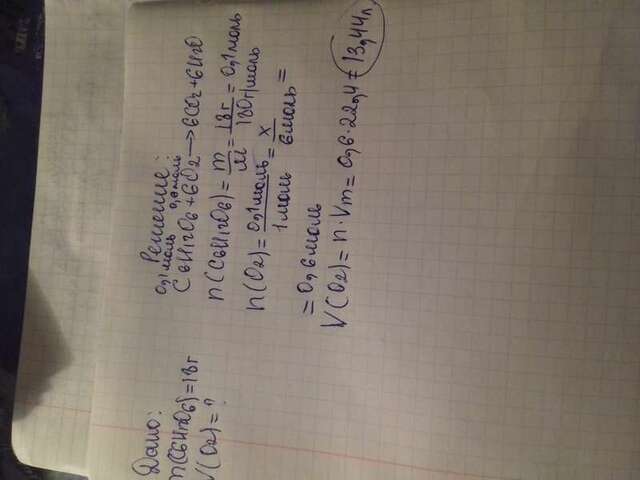 Дано:
m(C6H12O6)=18г
V(O2)=?
Решение:
0,1моль 0,6моль
C6H12O6+6O2→6CO2+6H2O
n(C6H12O6)=m/M=18г/180г/моль=0,1моль
n(O2)=0,1моль/1моль=x/6моль=
=0,6моль
V(O2)=n·Vm=0,6·22,4=13,44л